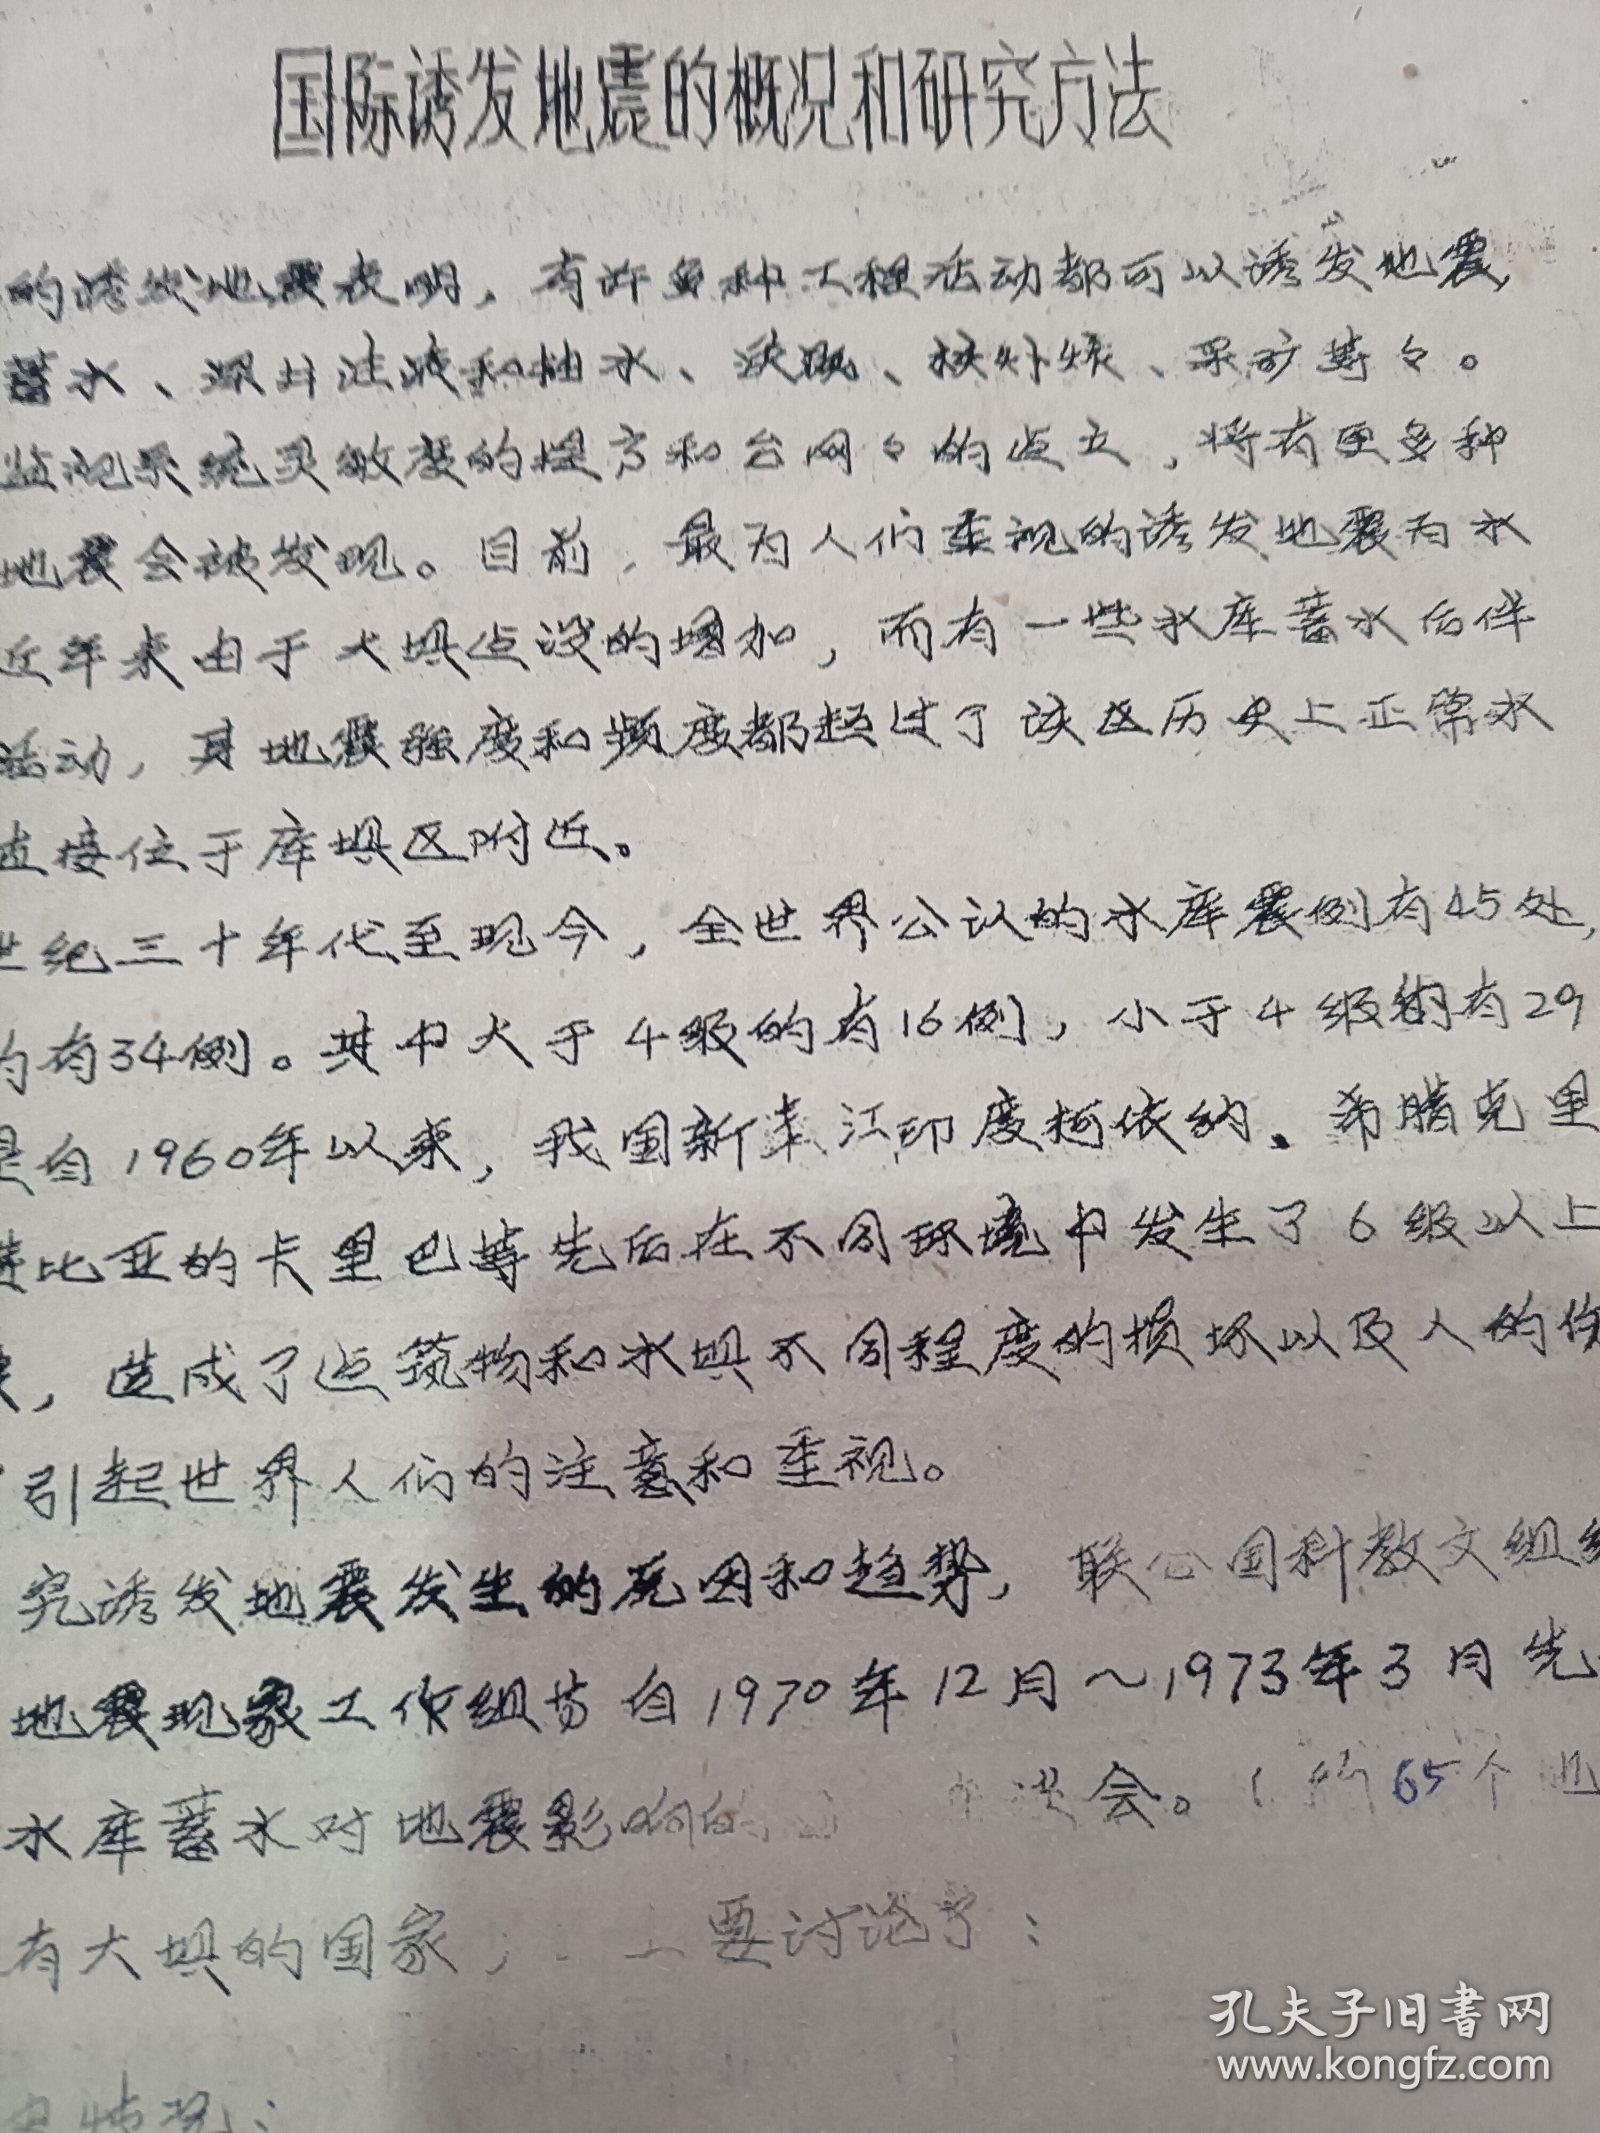 国际诱发地震的概况和研究方法
的诱发地震表明，有许多种工程活动都可以诱发地震，
蓄水、深井注液和抽水、核外爆、采矿等々。
监测系统灵敏度的提高和台网々的建立，将有更多种
地震会被发现。目前，最为人们重视的诱发地震为水
近年来由于大坝建设的增加，而有一些水库蓄水后伴
活动，其地震强度和频度都超过了该区历史上正常水
直接位于库坝区附近。
世纪三十年代至现今，全世界公认的水库震例有45处，
的有34例。其中大于4级的有16例，小于4级的有29
是自1960年以来，我国新丰江印度柯依纳、希腊克里
赞比亚的卡里巴等先后在不同环境中发生了6级以上
，造成了建筑物和水坝不同程度的损坏以及人的伤
引起世界人们的注意和重视。
究诱发地震发生的原因和趋势，联合国科教文组织
地震现象工作组曾自1970年12月～1973年3月先
水库蓄水对地震影响的会。（约65个地
有大坝的国家，要讨论了：
情况：
孔夫子旧书网
www.kongfz.com